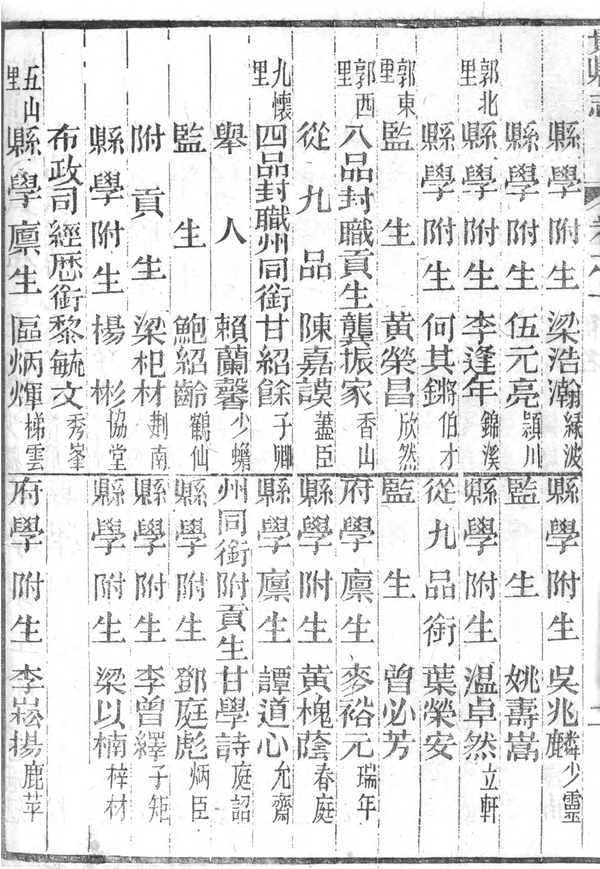 貴縣志
縣學附生梁浩瀚綠波
縣學附生伍元亮頴川
郭北里縣學附生李逢年錦溪
縣學附生何其鏘伯才
郭東里監生黃榮昌欣然
郭西里八品封職貢生龔振家香山
從九品陳嘉謨藎臣
九懷里四品封職州同銜甘紹餘子卿
舉人賴蘭馨少蟾
監生鮑紹齡鶴仙
附貢生梁杞材荆南
縣學附生楊彬協堂
布政司經歷銜黎毓文秀峯
五山里縣學廩生區炳煇梯雲
縣學附生吳兆麟少靈
監生姚壽嵩
縣學附生溫卓然立軒
從九品銜葉榮安
監生曾必芳
府學廩生麥裕元瑞年
縣學附生黃槐蔭春庭
縣學廩生譚道心允齋
州同銜附貢生甘學詩庭詔
縣學附生鄧庭彪炳臣
縣學附生李曾繹子矩
縣學附生梁以楠梓材
府學附生李崧揚鹿苹